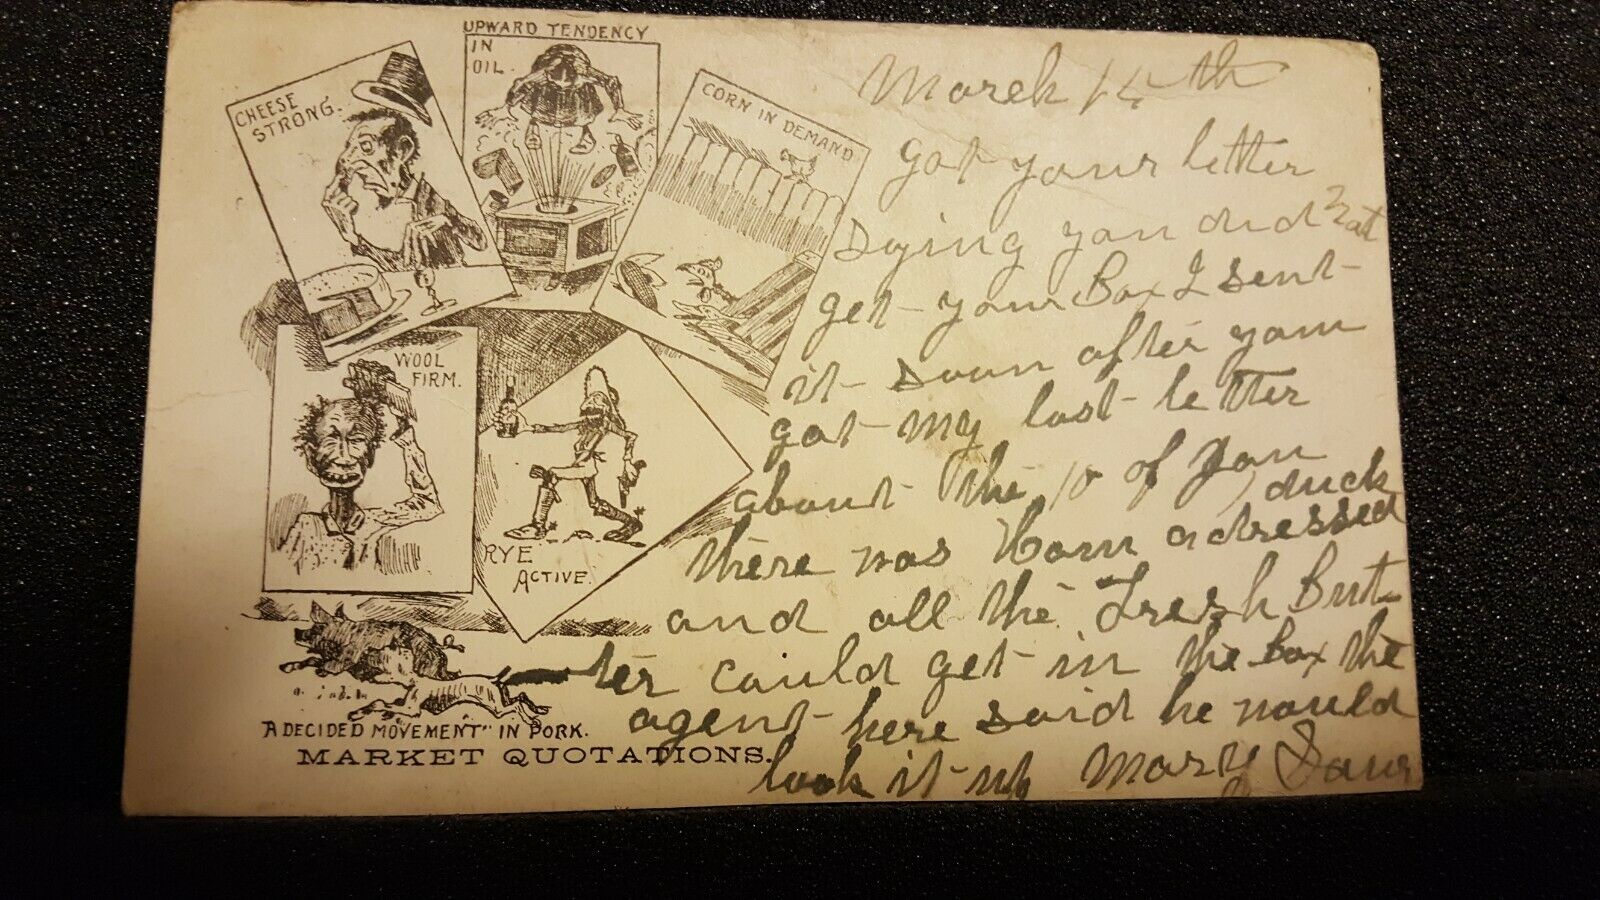 CHEESE
STRONG.
UPWARD TENDENCY
IN
OIL.
CORN IN DEMAND
WOOL
FIRM.
RYE
ACTIVE.
"A DECIDED MOVEMENT" IN PORK.
MARKET QUOTATIONS.
March 14th
got your letter
saying you did not
get your Box I sent
it soon after you
got my last letter
about the 10 of Jan
there was Ham duck
adressed
and all the Fresh But
ter could get in the Box the
agent here said he would
look it up Mary